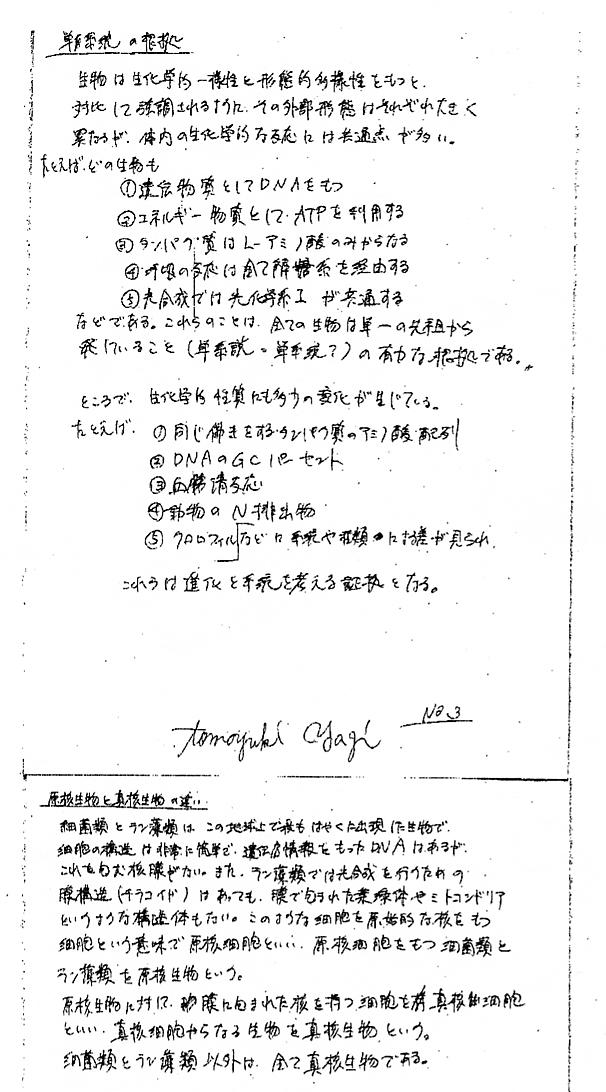 単系統の根拠
生物は生化学的一様性と形態的多様性をもつと、
対比して強調されるように、その外部形態はそれぞれ大きく
異なるが、体内の生化学的な反応には共通点が多い。
たとえば、どの生物も
①遺伝物質としてDNAをもつ
②エネルギー物質として、ATPを利用する
③タンパク質はL-アミノ酸のみからなる
④呼吸の反応は全て解糖系を経由する
⑤光合成では光化学系Iが共通する
などである。これらのことは、全ての生物は単一の先祖から
発していること(単系説=単系統?)の有力な根拠である。
ところで、生化学的性質にも多少の変化が生じている。
たとえば、①同じ働きをするタンパク質のアミノ酸配列
②DNAのGCパーセント
③血清反応
④動物のN排出物
⑤クロロフィルなどに系統や種類に差が見られ
これらは進化と系統を考える証拠となる。
No.3
tomoyuki Yagi
原核生物と真核生物の違い
細菌類とラン藻類は、この地球上で最もはやくに出現した生物で、
細胞の構造は非常に簡単で、遺伝情報をもったDNAはあるが、
これを包む核膜がない。また、ラン藻類では光合成を行うための
膜構造(チラコイド)はあっても、膜で包まれた葉緑体やミトコンドリア
というような構造体もない。このような細胞を原始的な核をもつ
細胞という意味で原核細胞といい、原核細胞をもつ細菌類と
ラン藻類を原核生物という。
原核生物に対して、膜に包まれた核を持つ細胞を真核細胞
といい、真核細胞からなる生物を真核生物という。
細菌類とラン藻類以外は、全て真核生物である。